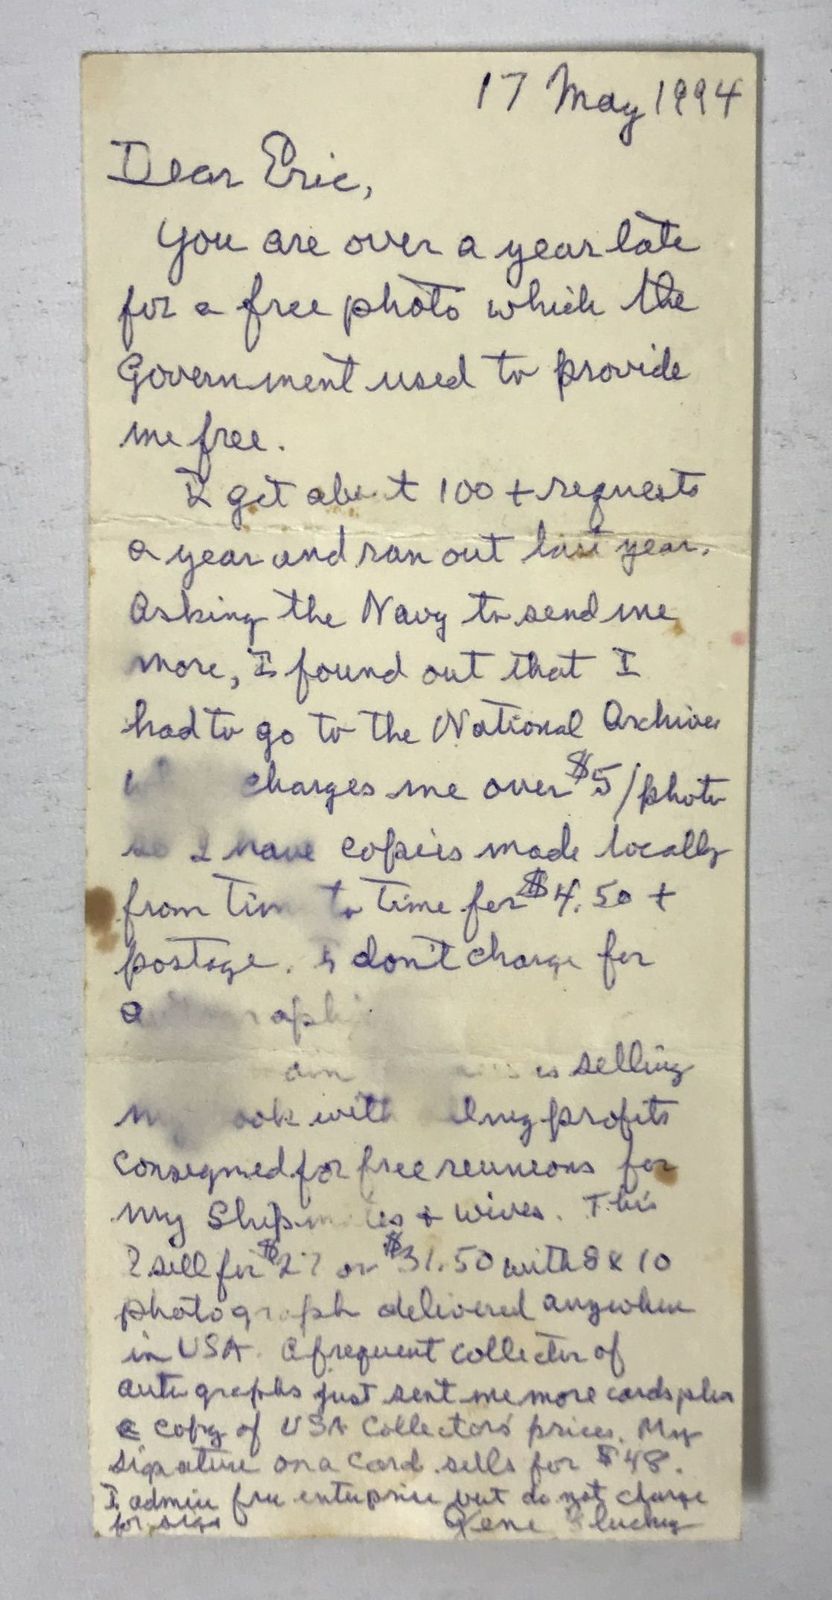 17 May 1994
Dear Eric,
You are over a year late
for a free photo which the
Government used to provide
me free.
I get about 100 + requests
a year and ran out last year.
Asking the Navy to send me
more, I found out that I
had to go to the National Archives
charges me over $5/photo
so I have copies made locally
from time to time for $4.50 +
postage. I don't charge for
is selling
my book with profits
consigned for free reunions for
my Shipmates + wives. This
I sell for $27 or $31.50 with 8 x 10
photograph delivered anywhere
in USA. A frequent collector of
autographs just sent me more cards plus
a copy of USA Collectors' prices. My
signature on a card sells for $48.
I admire free enterprise but do not charge
for sigs
Gene Fluckey